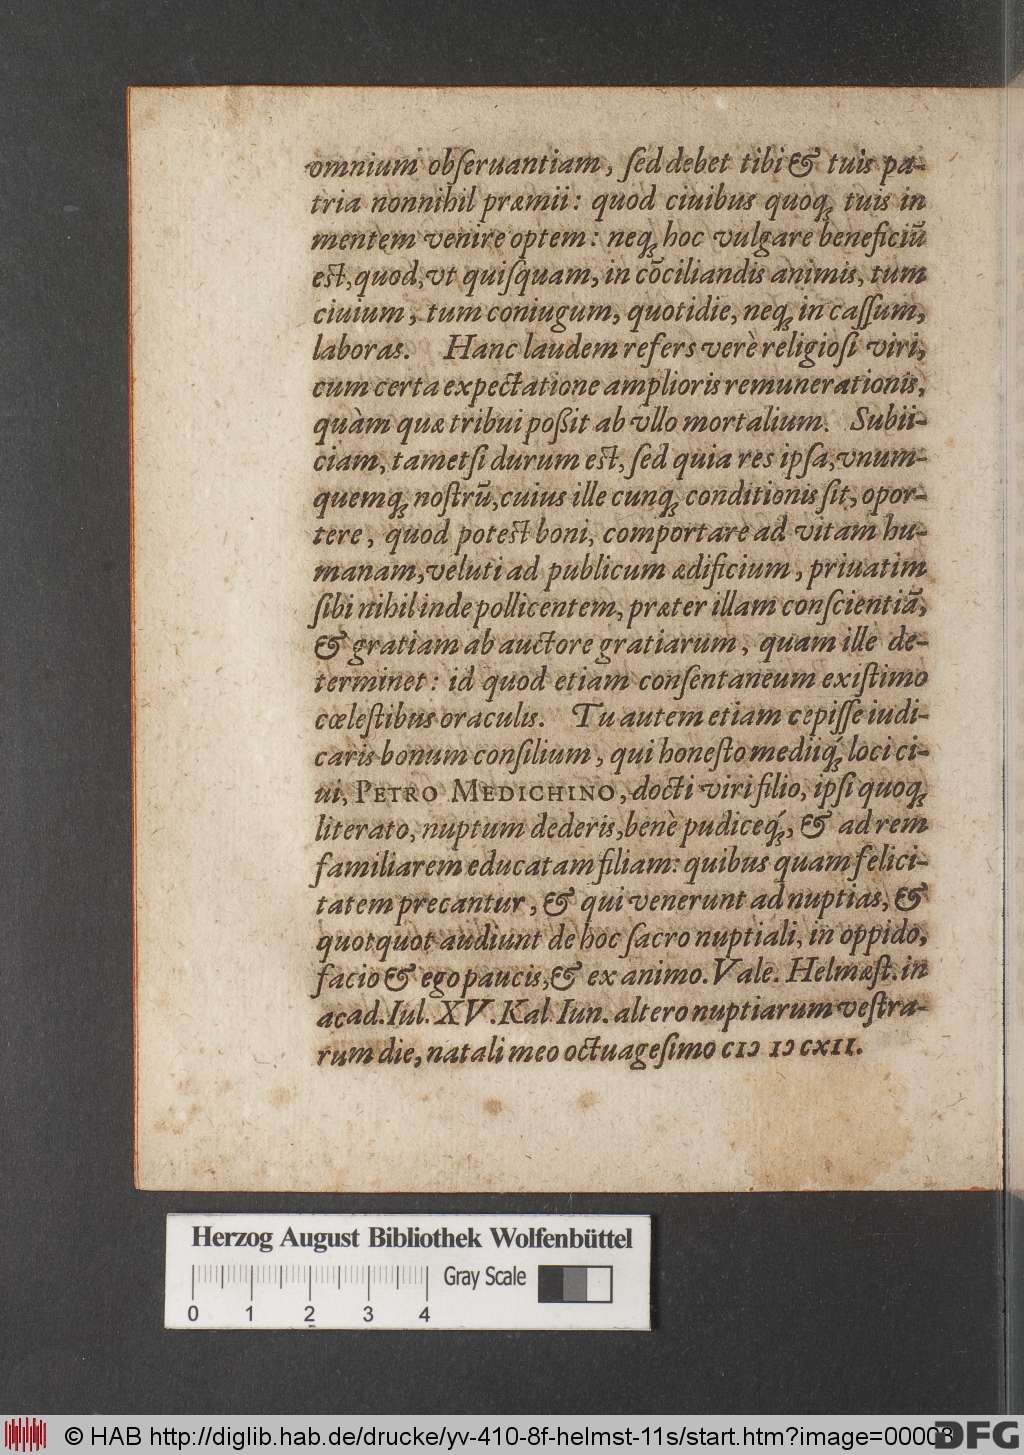 omnium obſeruantiam, ſed debet tibi & tuis pa-
tria nonnihil præmii: quod ciuibus quoq; tuis in
mentem venire optem: neq; hoc vulgare beneficiũ
eſt, quod, vt quiſquam, in cõciliandis animis, tum
ciuium, tum coniugum, quotidie, neq; in caſſum,
laboras. Hanc laudem refers verè religioſi viri,
cum certa expectatione amplioris remunerationis,
quàm quæ tribui poßit ab vllo mortalium. Subii-
ciam, tametſi durum eſt, ſed quia res ipſa, vnum-
quemq; noſtrũ, cuius ille cunq; conditionis ſit, opor-
tere, quod poteſt boni, comportare ad vitam hu-
manam, veluti ad publicum ædificium, priuatim
ſibi nihil inde pollicentem, præter illam conſcientiã,
& gratiam ab auctore gratiarum, quam ille de-
terminet: id quod etiam conſentaneum exiſtimo
cœleſtibus oraculis. Tu autem etiam cepiſſe iudi-
caris bonum conſilium, qui honeſto mediiq́; loci ci-
ui, PETRO MEDICHINO, docti viri filio, ipſi quoq;
literato, nuptum dederis, benè pudiceq́;, & ad rem
familiarem educatam filiam: quibus quam felici-
tatem precantur, & qui venerunt ad nuptias, &
quotquot audiunt de hoc ſacro nuptiali, in oppido,
facio & ego paucis, & ex animo. Vale. Helmæſt. in
acad. Iul. XV. Kal Iun. altero nuptiarum veſtra-
rum die, natali meo octuageſimo CIↃ IↃ CXII.
Herzog August Bibliothek Wolfenbüttel
Gray Scale
0 1 2 3 4
© HAB http://diglib.hab.de/drucke/yv-410-8f-helmst-11s/start.htm?image=00008
DFG